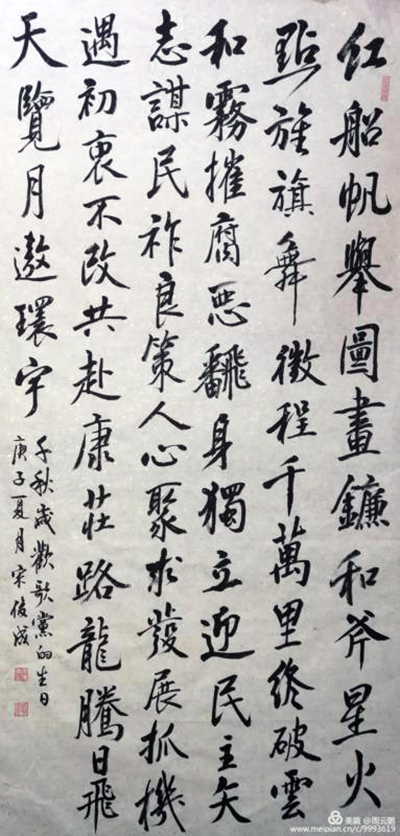 红船帆舉圖畫鐮和斧星火
點旌旗舞徵程千萬里終破雲
和霧摧腐惡翻身獨立迎民主矢
志謀民祚良策人心聚求發展抓機
遇初衷不改共赴康莊路龍騰日飛
天覽月遨環宇
千秋歲歡歌黨的生日
庚子夏月宋俊成
美篇 @周云鹏
www.meipian.cn/c/9993619